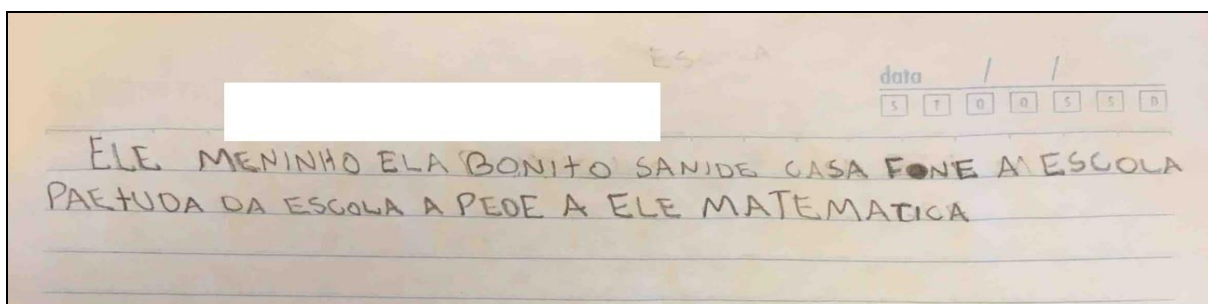 data / /
S T Q Q S S D
ELE MENINHO ELA BONITO SANIDE CASA FONE A ESCOLA
PAETUDA DA ESCOLA A PEDE A ELE MATEMATICA